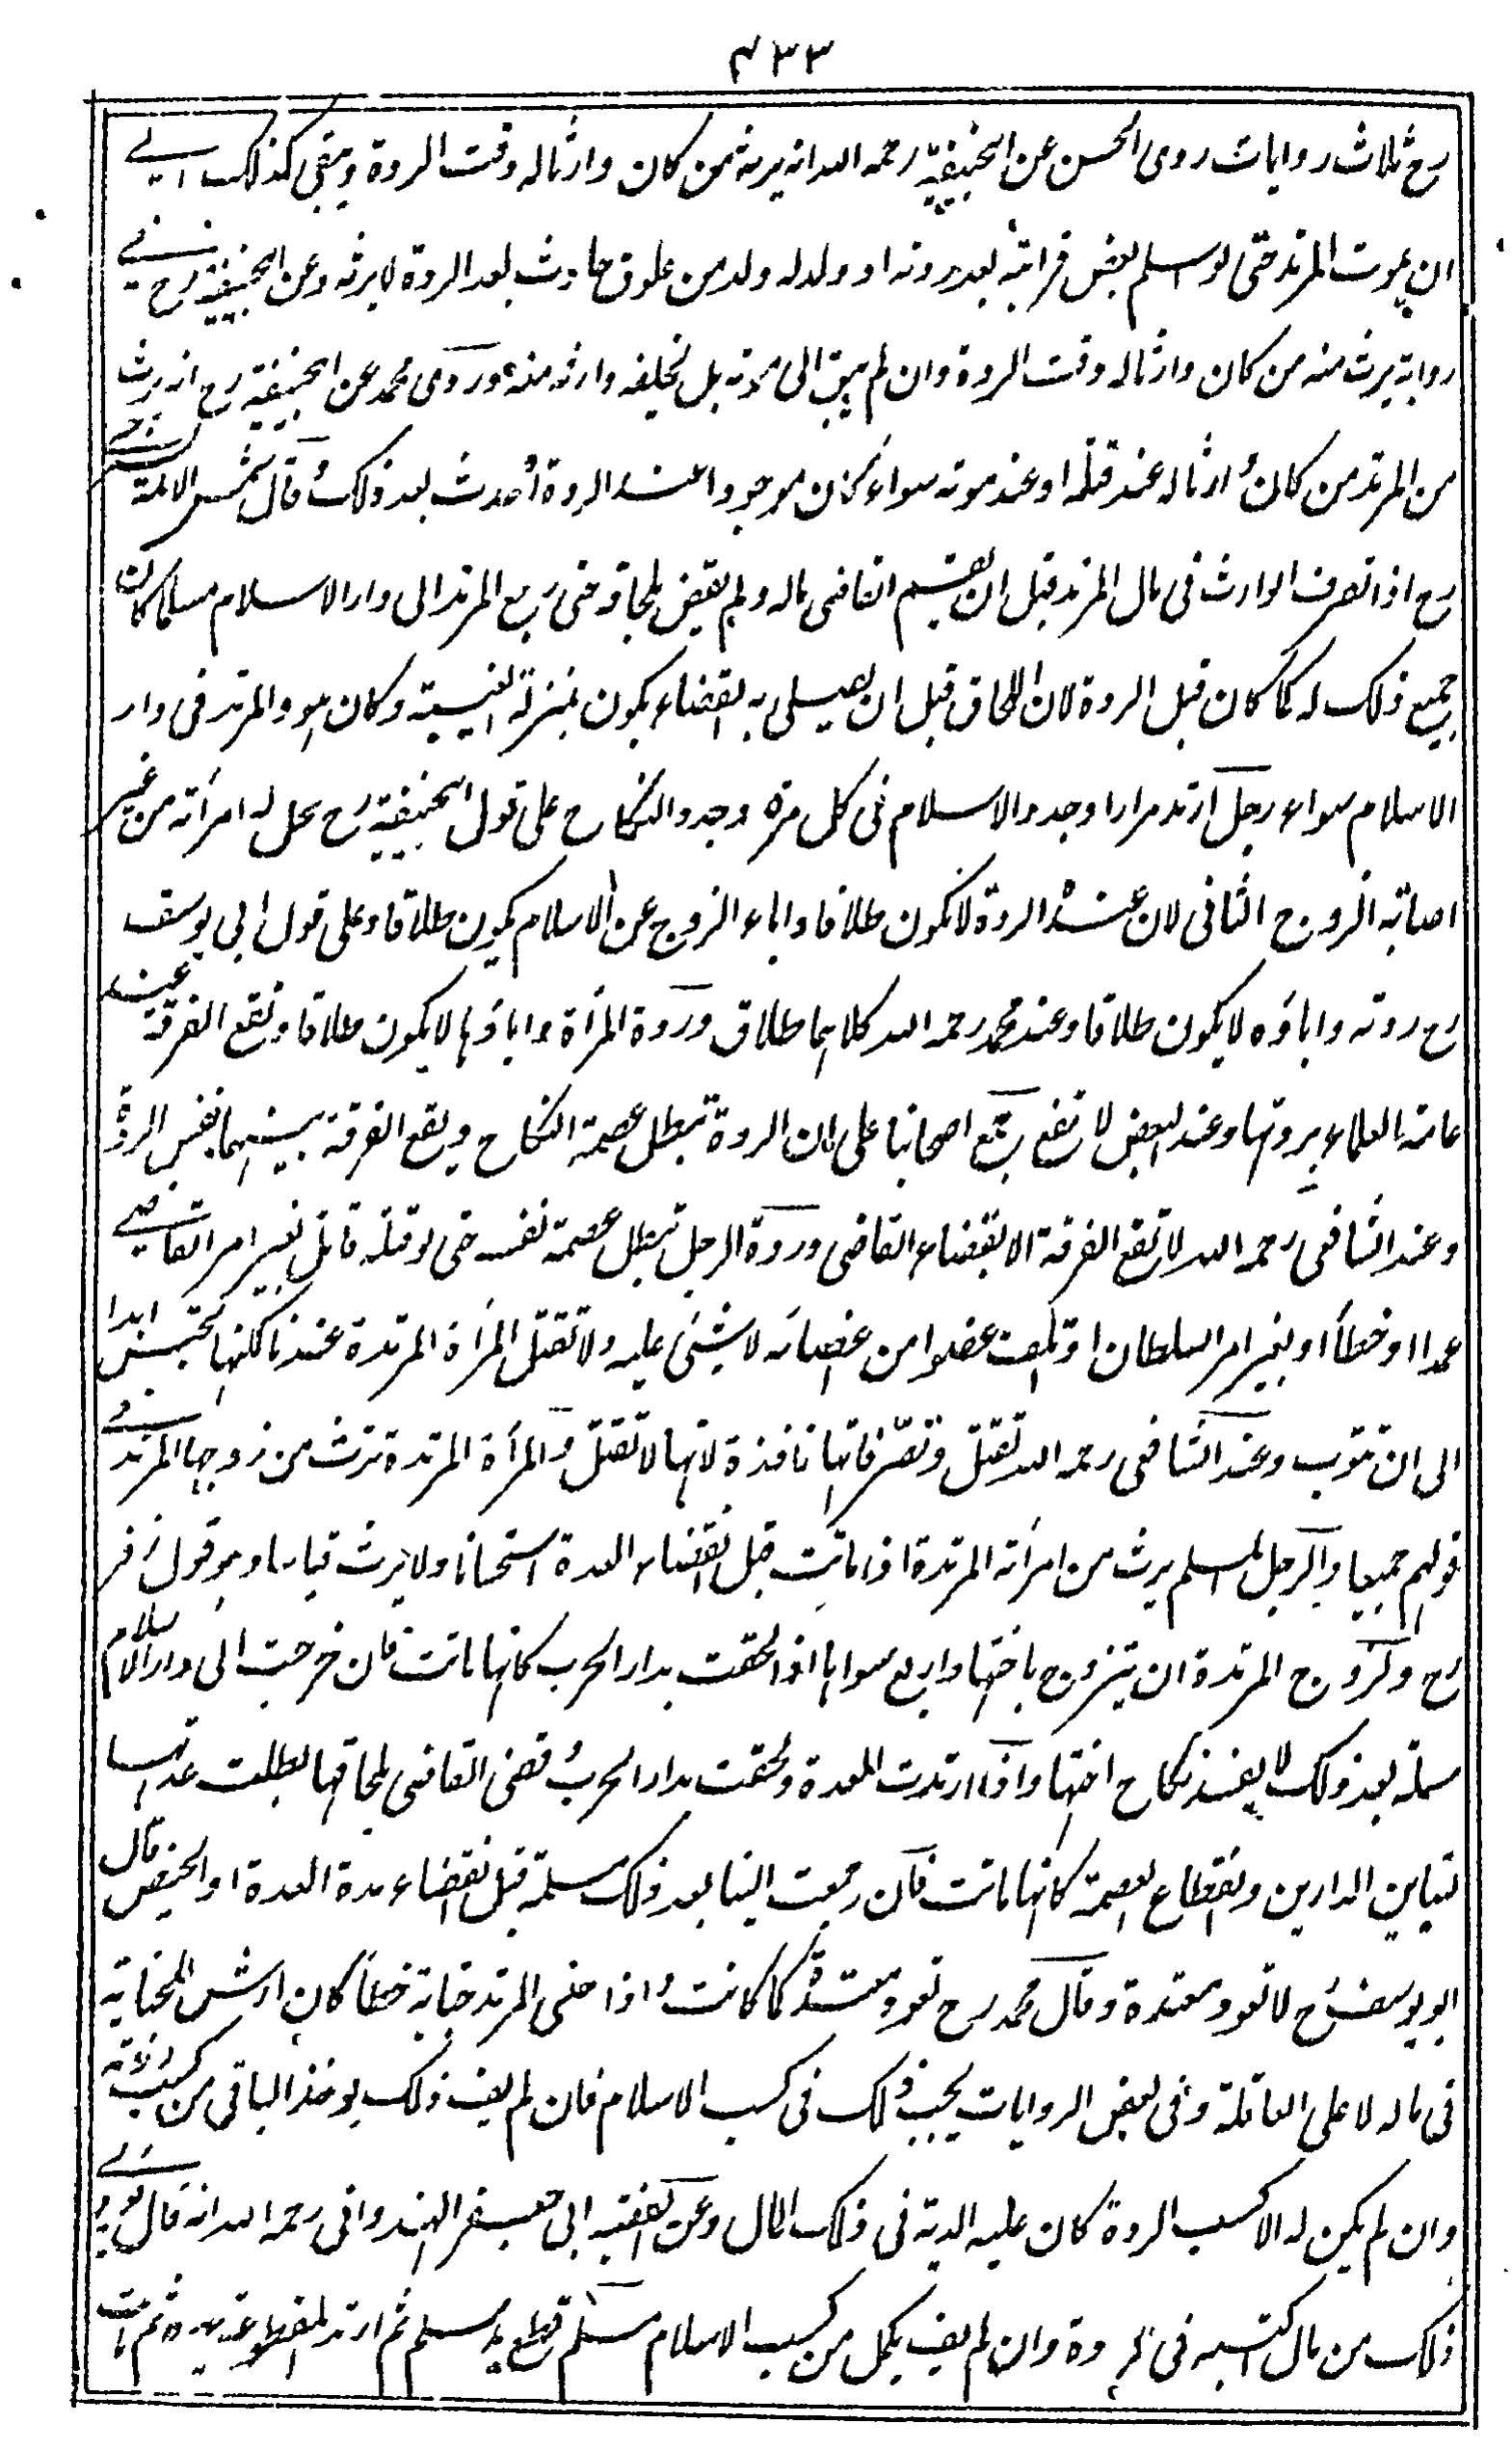 ۴۳۳
رح ثلاث روايات روى الحسن عن ابيحنيفة رحمه الله انه يرثه من كان وارثا له وقت الردة وبقى كذلك الى
ان يموت المرتد حتى لو اسلم بعض قرابته بعد ردته او ولد له ولد من علوق حادث بعد الردة لا يرثه وعن ابيحنيفة رح فى
رواية يرث منه من كان وارثا له وقت الردة وان لم يبق الى موته بل يخلفه وارثه منه وروى محمد عن ابيحنيفة رح انه يرث
من المرتد من كان وارثا له عند قتله او عند موته سواء كان موجودا عند الردة او حدث بعد ذلك وقال شمس الائمة السرخسى
رح اذا تصرف الوارث فى مال المرتد قبل ان يقسم القاضى ماله ولم يقض بلحاقه حتى رجع المرتد الى دار الاسلام مسلما كان
جميع ذلك له كما كان قبل الردة لان اللحاق قبل ان يصل به القضاء يكون بمنزلة الغيبة وكان هو والمرتد فى دار
الاسلام سواء رجل ارتد مرارا وجدد الاسلام فى كل مرة وجدد النكاح على قول ابيحنيفة رح يحل له امرأته من غير
اصابة الزوج الثانى لان عنده الردة لا تكون طلاقا واباء الزوج عن الاسلام يكون طلاقا وعلى قول ابى يوسف
رح ردته واباؤه لا يكون طلاقا وعند محمد رحمه الله كلاهما طلاق وردة المرأة واباؤها لا يكون طلاقا وتقع الفرقة عند
عامة العلماء بردتها وعند البعض لا تقع اجمع اصحابنا على ان الردة تبطل عصمة النكاح ويقع الفرقة بينهما بنفس الردة
وعند الشافعى رحمه الله لا تقع الفرقة الا بقضاء القاضى وردة الرجل تبطل عصمة نفسه حتى لو قتله قاتل بغير امر القاضى
عمدا او خطأ او بغير امر السلطان او تلف عضوا من اعضائه لا شئ عليه ولا تقتل المرأة المرتدة عندنا لكنها تحبس ابدا
الى ان تتوب وعند الشافعى رحمه الله تقتل وتصرفاتها نافذة لانها لا تقتل والمرأة المرتدة ترث من زوجها المرتد فى
قولهم جميعا والرجل المسلم يرث من امرأته المرتدة اذا ماتت قبل انقضاء العدة استحسانا ولا يرث قياسا وهو قول زفر
رح ولزوج المرتدة ان يتزوج باختها واربع سواها اذا لحقت بدار الحرب كانها ماتت فان خرجت الى دار الاسلام
مسلمة بعد ذلك لا يفسد نكاح اختها واذا ارتدت المعتدة ولحقت بدار الحرب وقضى القاضى بلحاقها بطلت عدتها
لتباين الدارين وانقطاع العصمة كانها ماتت فان رجعت الينا بعد ذلك مسلمة قبل انقضاء مدة العدة او الحيض قال
ابو يوسف رح لا تعود معتدة وقال محمد رح تعود معتدة كما كانت واذا جنى المرتد جناية خطأ كان ارش الجناية
فى ماله لا على العاقلة وفى بعض الروايات يجب ذلك فى كسب الاسلام فان لم يف ذلك يوخذ الباقى من كسب ردته
وان لم يكن له الا كسب الردة كان عليه الدية فى ذلك المال وعن الفقيه ابى جعفر الهندوانى رحمه الله انه قال
ذلك من مال اكتسبه فى الردة وان لم يف يكمل من كسب الاسلام مسلم قطع يد مسلم ثم ارتد المقطوعة يده ثم مات